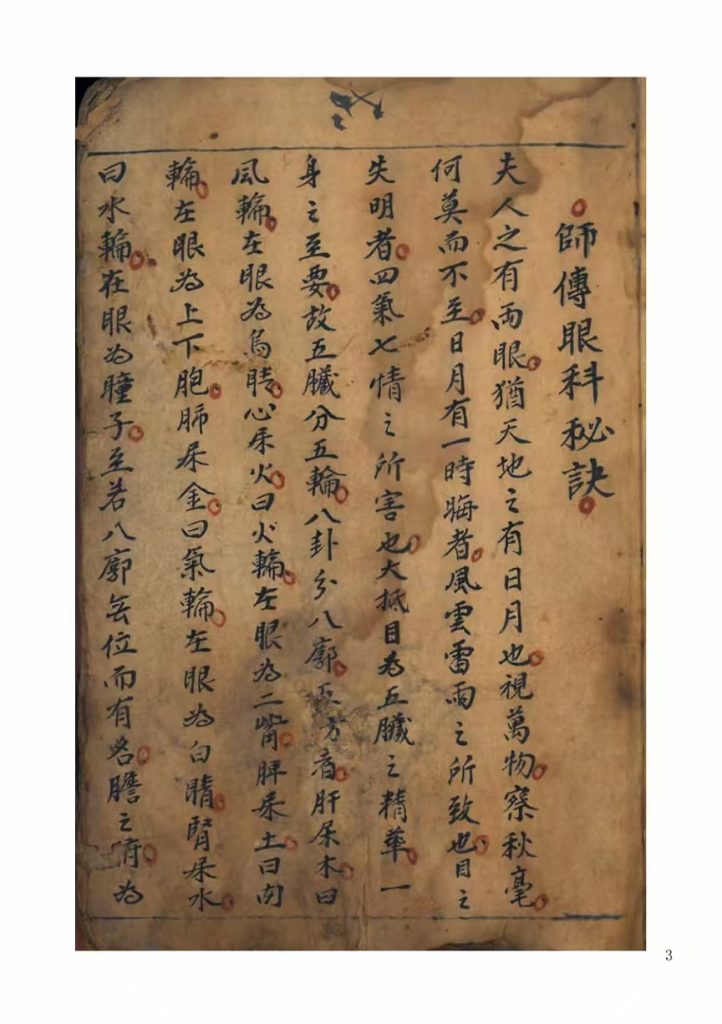 師傳眼科秘訣
夫人之有兩眼猶天地之有日月也視萬物察秋毫
何莫而不至日月有一時晦者風雲雷雨之所致也目之
失明者四氣七情之所害也大抵目為五臟之精華一
身之至要故五臟分五輪八卦分八廓五方者肝屎木曰
風輪在眼為烏睛心屎火曰火輪在眼為二嘴脾屎土曰肉
輪在眼為上下胞肺屎金曰氣輪在眼為白睛腎屎水
曰水輪在眼為瞳子至若八廓無位而有名膽之腑為
3